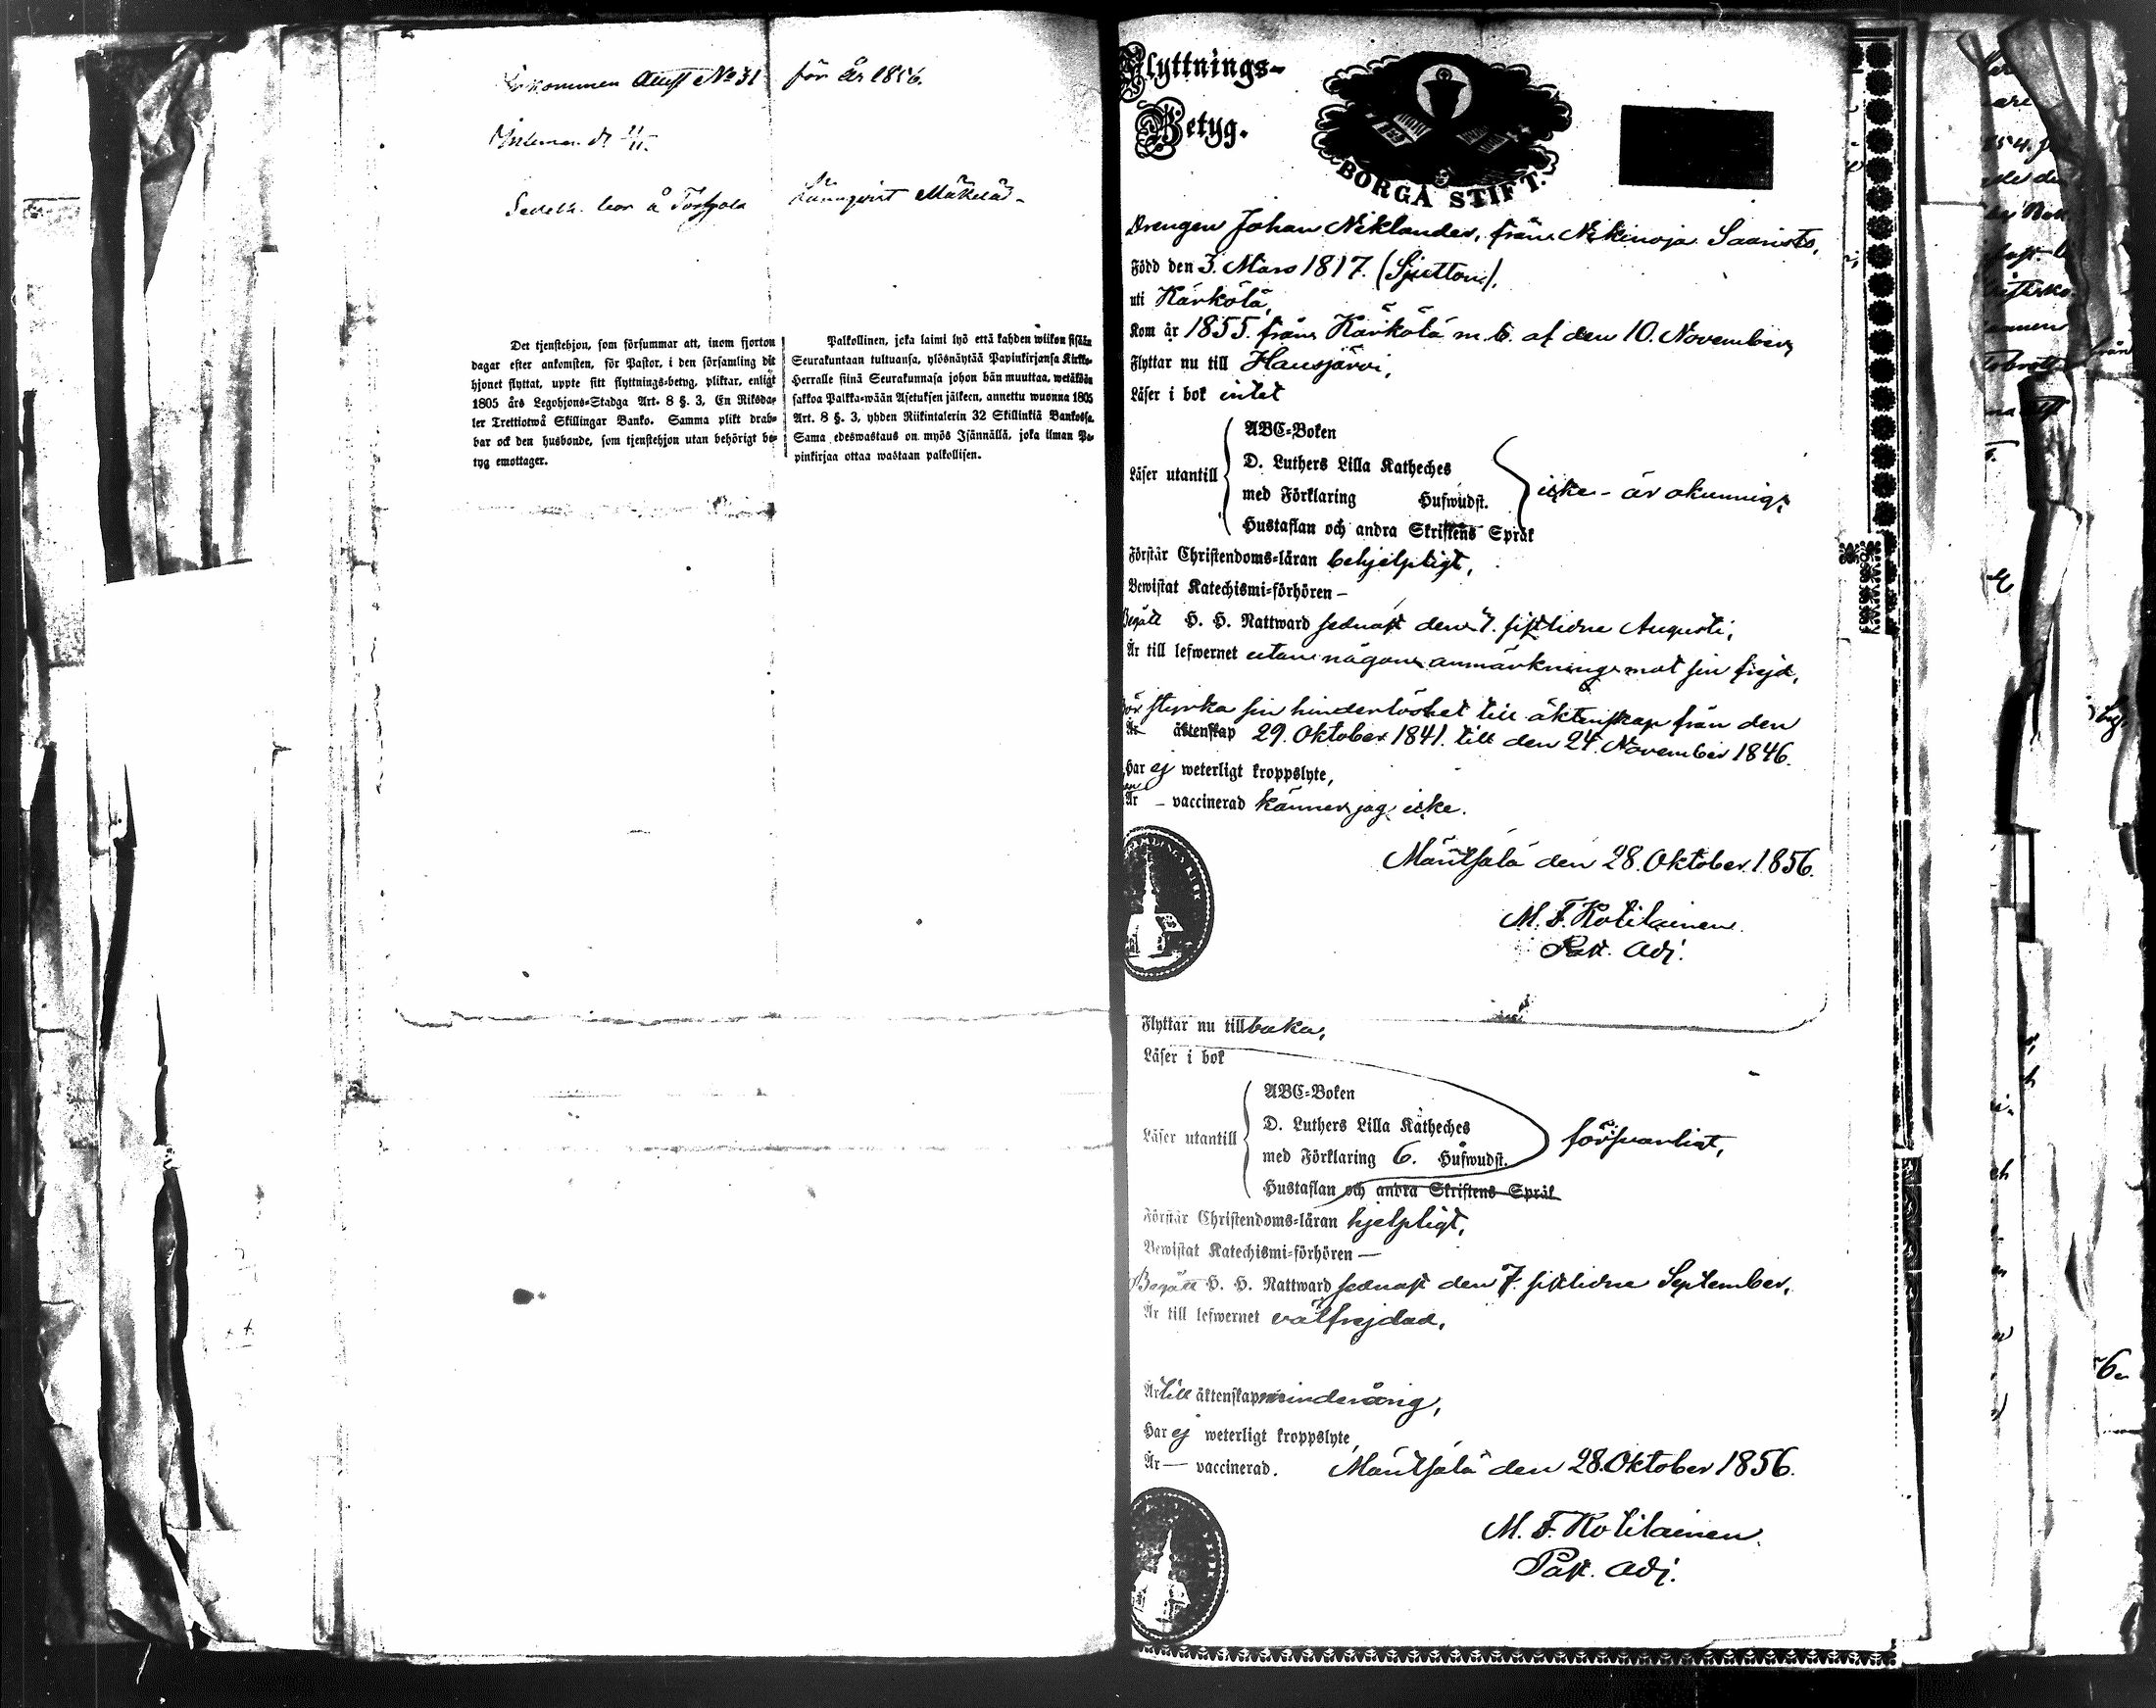 för år 1856.
Det tjenstehjon, som försummar att, inom fjorton
dagar efter ankomsten, för Pastor, i den församling dit
hjonet flyttat, uppte sitt flyttnings-betyg, pliktar, enligt
1805 års Legohjons-Stadga Art. 8 §. 3, En Riksda-
ler Trettiotwå Skillingar Banko. Samma plikt drab-
bar ock den husbonde, som tjenstehjon utan behörigt be-
tyg emottager.
Palkollinen, joka laimi lyö että kahden wiikon sisään
Seurakuntaan tultuansa, ylösnäytää Papinkirjansa Kirkko-
Herralle siinä Seurakunnasa johon hän muuttaa, wetäköön
sakkoa Palkka-wään Asetuksen jälkeen, annettu wuonna 1805
Art. 8 §. 3, yhden Riikintalerin 32 Skillinkiä Bankossa.
Sama edeswastaus on myös Isännällä, joka ilman Pa-
pinkirjaa ottaa wastaan palkollisen.
Flyttnings-
Betyg.
BORGÅ STIFT.
Drengen Johan Niklander, från Nikinoja Saaristo,
Född den 3. Mars 1817. (Sjutton),
uti Kärkölä,
Kom år 1855 från Kärkölä m. b. af den 10. November,
Flyttar nu till Hausjärvi,
Läser i bok intet
ABC-Boken
D. Luthers Lilla Katheches
Läser utantill
med Förklaring Hufwudst.
icke - är okunnig,
Hustaflan och andra Skriftens Språk
Förstår Christendoms-läran behjelpligt,
Bewistat Katechismi-förhören —
Begått H. H. Nattward sednast den 7. sistlidne Augusti,
Är till lefwernet utan någon anmärkning mot sin frejd,
Bör styrka sin hinderlöshet till äktenskap från den
Är äktenskap 29. Oktober 1841. till den 24. November 1846.
Har ej weterligt kroppslyte,
Är – vaccinerad känner jag icke.
Mäntsälä den 28. Oktober 1856.
M. F. Kotilainen
Past. Adj.
Flyttar nu tillbaka,
Läser i bok
ABC-Boken
D. Luthers Lilla Katheches
Läser utantill
med Förklaring 6. Hufwudst.
försvarligt,
Hustaflan och andra Skriftens Språk
Förstår Christendoms-läran hjelpligt,
Bewistat Katechismi-förhören —
Begått H. H. Nattward sednast den 7. sistlidne September,
Är till lefwernet välfrejdad,
Är till äktenskap minderårig,
Har ej weterligt kroppslyte,
Är — vaccinerad. Mäntsälä den 28. Oktober 1856.
M. F. Kotilainen
Past. Adj.